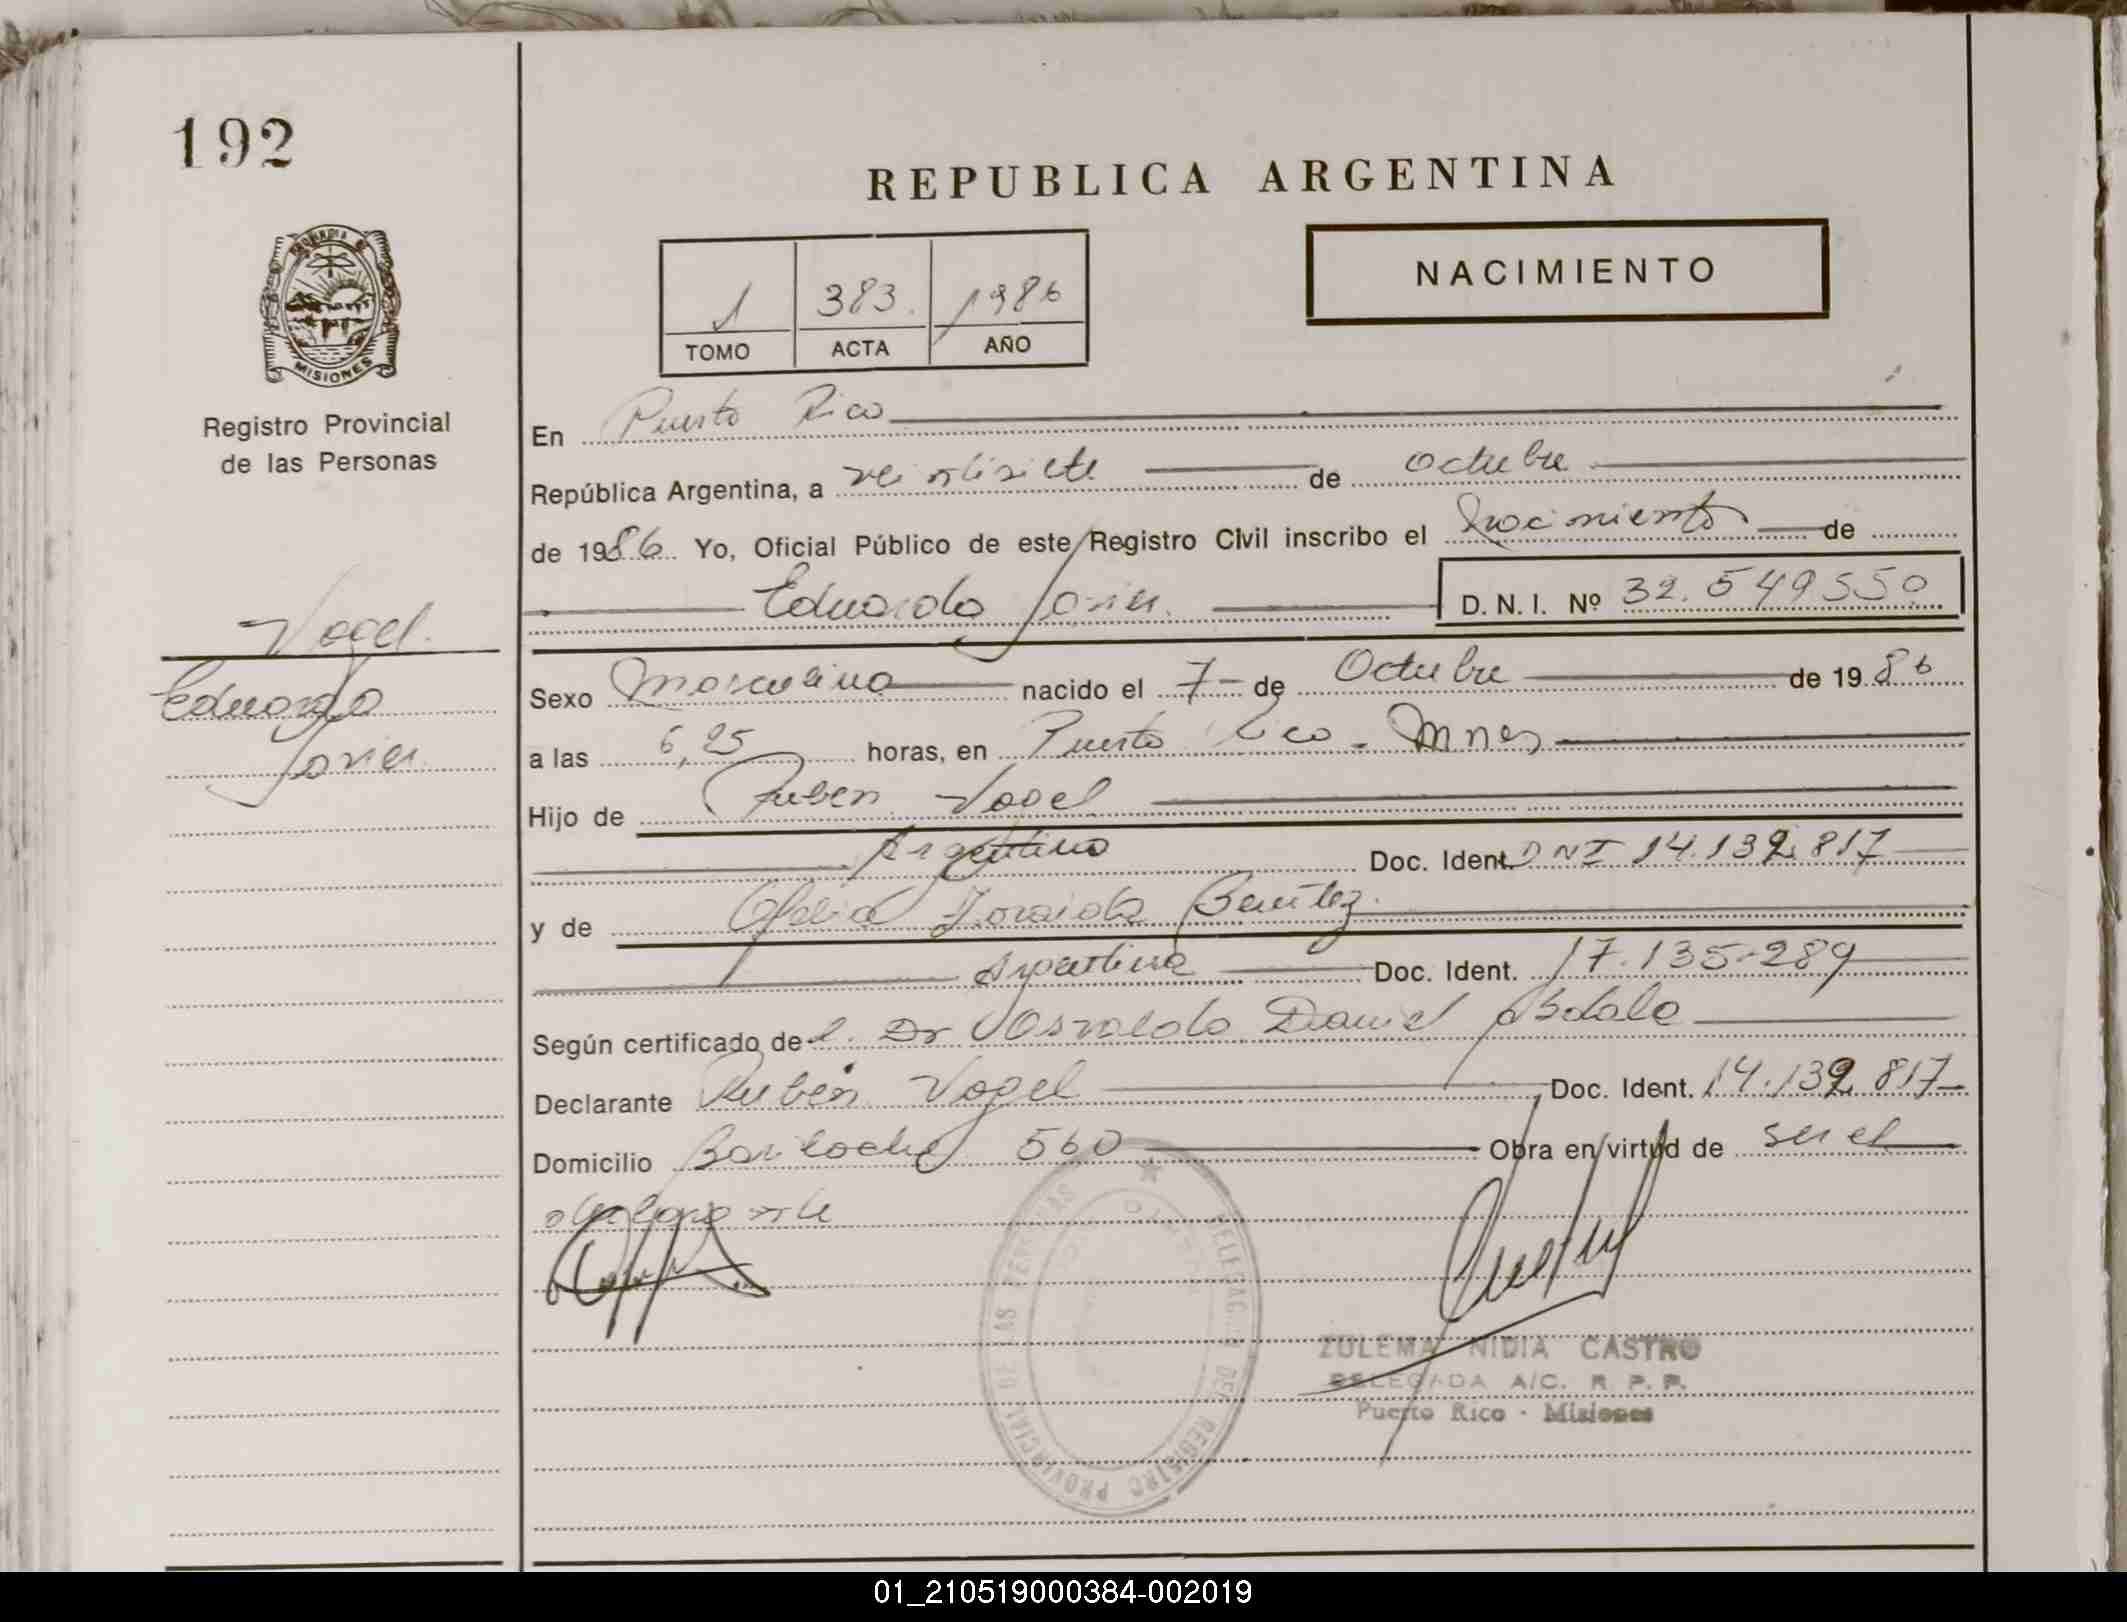 192
REPUBLICA ARGENTINA
NACIMIENTO
1 383. 1986
TOMO ACTA AÑO
PROVINCIA DE
MISIONES
Registro Provincial
de las Personas
En Puerto Rico
República Argentina, a veintisiete de octubre
de 1986 Yo, Oficial Público de este Registro Civil inscribo el Nacimiento de
Eduardo Javier. D. N. I. Nº 32.549550
Vogel.
Eduardo
Javier.
Sexo Masculino nacido el 7 de Octubre de 1986
a las 6,25 horas, en Puerto Rico - Mnes
Hijo de Ruben Vogel
Argentino Doc. Ident. DNI 14.139.817
y de Ofelia Zoraida Benítez.
Argentina Doc. Ident. 17.135.289
Según certificado del. Dr Osvaldo Daniel
Declarante Rubén Vogel Doc. Ident. 14.139.817
Domicilio Bariloche 560 Obra en virtud de ser el
DELEGACION DEL REGISTRO PROVINCIAL DE LAS PERSONAS
ZULEMA NIDIA CASTRO
DELEGADA A/C. R. P. P.
Puerto Rico - Misiones
01_210519000384-002019